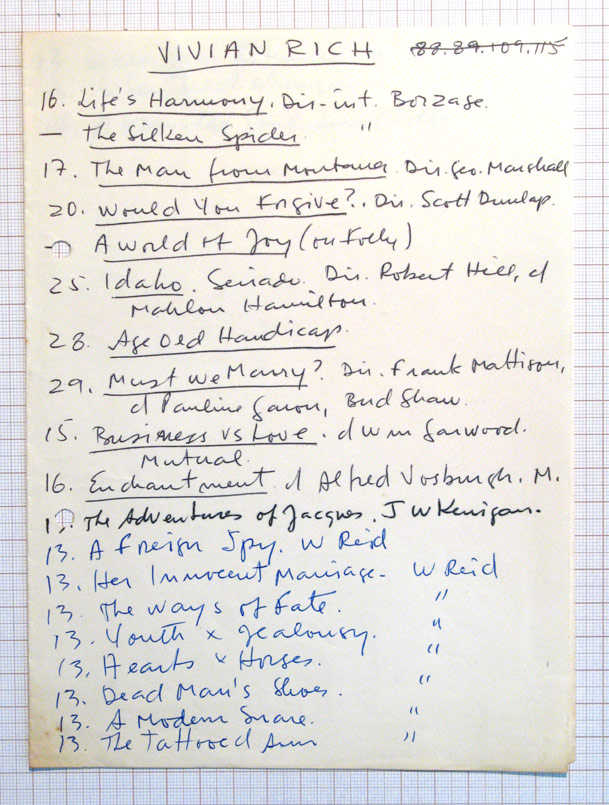 VIVIAN RICH 88.89.109.115
16. Life's Harmony. Dir-int. Borzage.
— The Silken Spider. "
17. The Man from Montana. Dir. Geo. Marshall
20. Would You Forgive?. Dir. Scott Dunlap.
- A World of Joy (or Folly)
25. Idaho. Seriado. Dir. Robert Hill, d
Mahlon Hamilton.
28. Age Old Handicap.
29. Must We Marry? Dir. Frank Mattison,
d Pauline Garon, Bud Shaw.
15. Business vs Love. d Wm Garwood.
Mutual.
16. Enchantment d Alfred Vosburgh. M.
The Adventures of Jacques. J W Kerrigan.
13. A Foreign Spy. W Reid
13. Her Innocent Marriage- W Reid
13. The Ways of Fate. "
13. Youth x Jealousy. "
13. Hearts x Horses. "
13. Dead Man's Shoes. "
13. A Modern Snare. "
13. The Tattooed Arm "